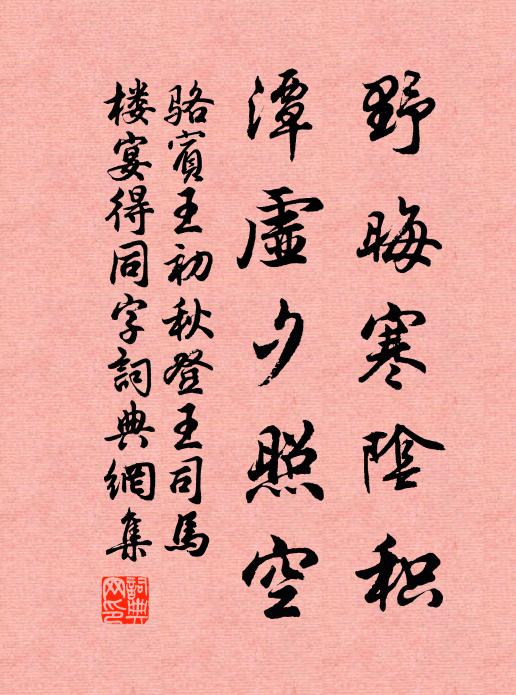 野晦寒陰积
潭虚夕照空
骆賓王初秋登王司馬
楼宴得同字詞典網集
詞典网印